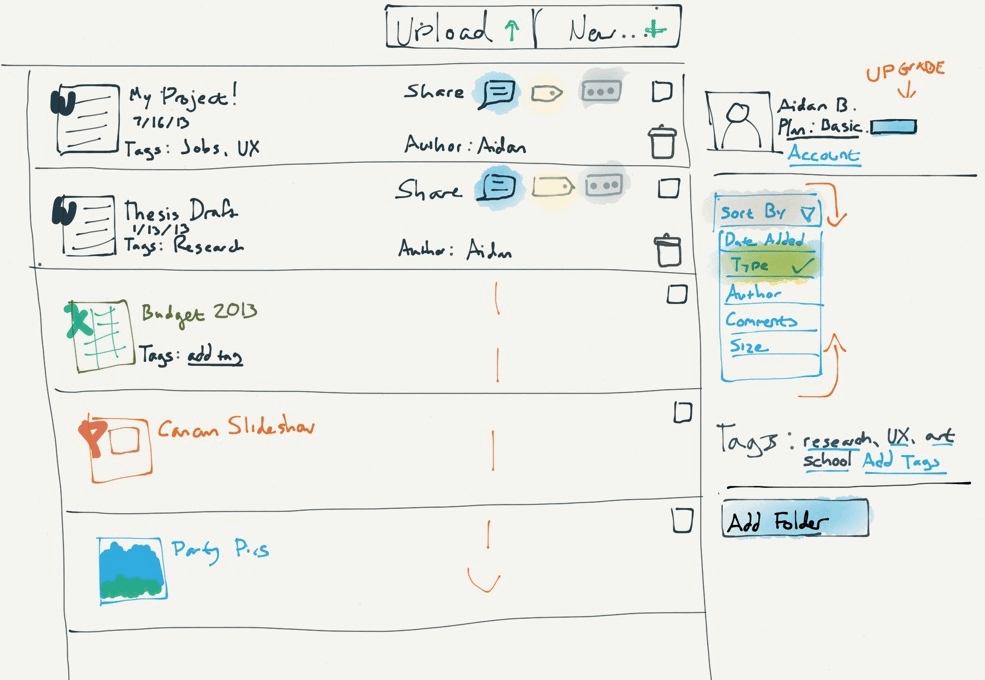 Upload New...
W My Project!
7/16/13
Tags: Jobs, UX
Share
Author: Aidan
W Thesis Draft
1/13/13
Tags: Research
Share
Author: Aidan
X Budget 2013
Tags: add tag
P Canam Slideshow
Party Pics
UPGRADE
Aidan B.
Plan: Basic
Account
Sort By
Date Added
Type
Author
Comments
Size
Tags: research, UX, art
school Add Tags
Add Folder